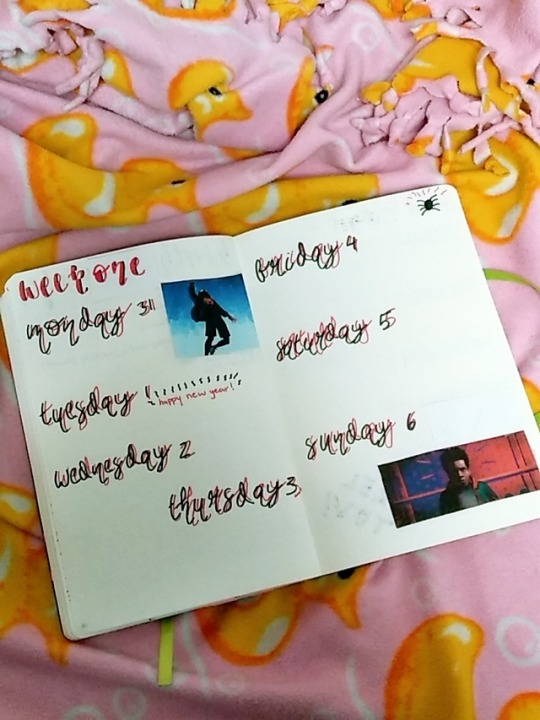 week one
monday 31
tuesday 1
happy new year!
wednesday 2
thursday 3
friday 4
saturday 5
sunday 6